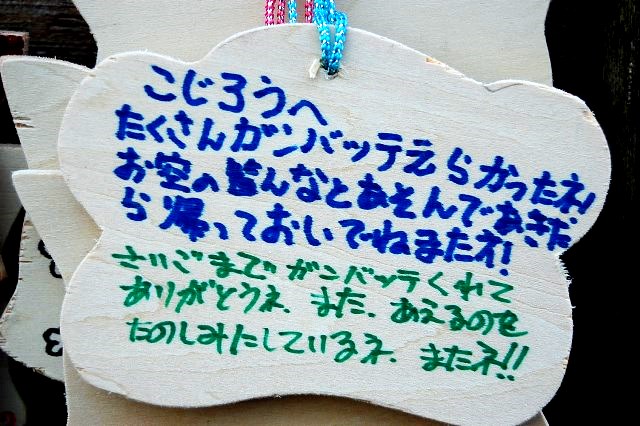 こじろうへ
たくさんガンバッテえらかったネ!
お空の皆んなとあそんであきた
ら帰っておいでねまたネ!
さいごまでガンバッテくれて
ありがとうネ、また、あえるのを
たのしみにしているネ、またネ!!